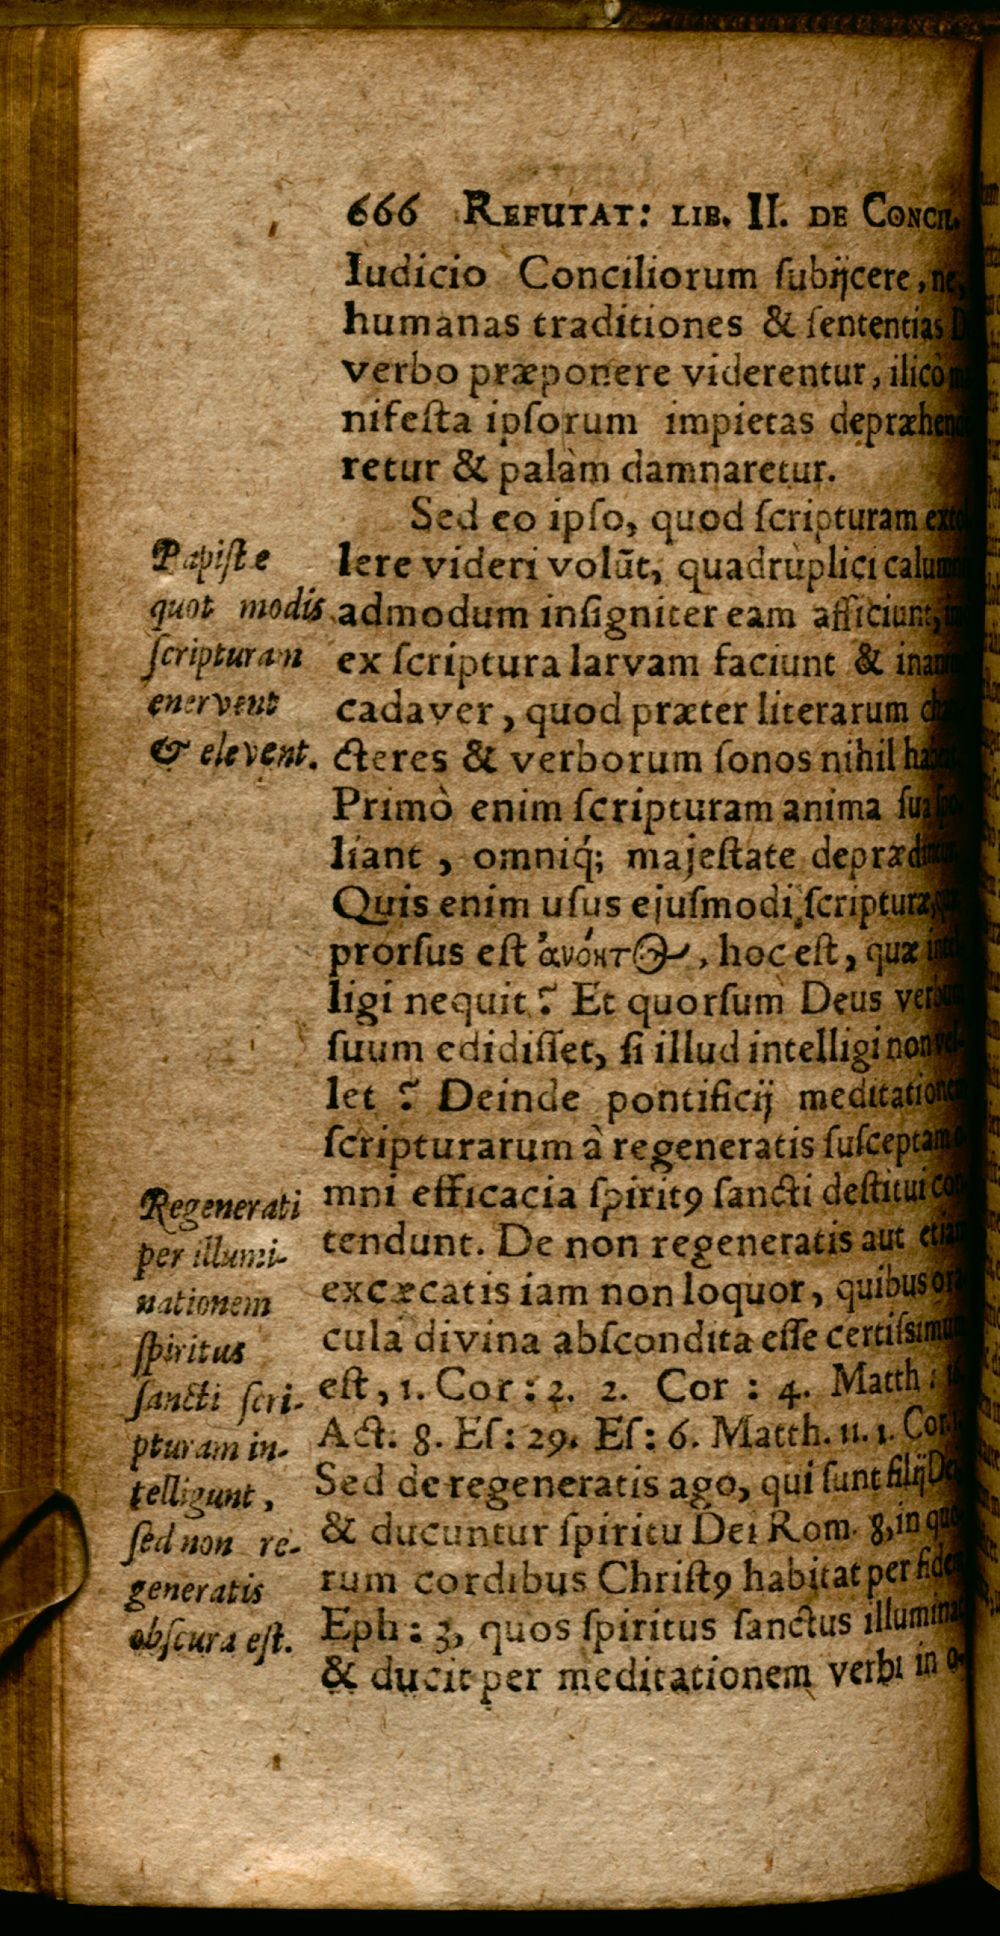 666 REFUTAT: LIB. II. DE CONCIL.
Iudicio Conciliorum ſubijcere, ne,
humanas traditiones & ſententias
verbo præponere viderentur, ilicò
nifeſta ipſorum impietas depræhen
retur & palàm damnaretur.
Sed eo ipſo, quod ſcripturam extol
lere videri volūt, quadruplici calum
admodum inſigniter eam afficiunt,
ex ſcriptura larvam faciunt & inan
cadaver, quod præter literarum cha
cteres & verborum ſonos nihil habet
Primò enim ſcripturam anima ſua ſpo-
liant, omniq́; majeſtate deprædantur.
Quis enim uſus ejuſmodi ſcripturæ, quæ
prorſus eſt ἀνόητος, hoc eſt, quæ intel
ligi nequit? Et quorſum Deus verbum
ſuum edidiſſet, ſi illud intelligi non vel-
let? Deinde pontificij meditationem
ſcripturarum â regeneratis ſuſceptam o-
mni efficacia ſpiritꝰ ſancti deſtitui con-
tendunt. De non regeneratis aut etiam
excæcatis iam non loquor, quibus ora
cula divina abſcondita eſſe certiſsimum
eſt, 1. Cor: 2. 2. Cor: 4. Matth: 16
Act. 8. Eſ: 29. Eſ: 6. Matth. 11. 1. Cor.
Sed de regeneratis ago, qui ſunt filij Dei,
& ducuntur ſpiritu Dei Rom. 8, in quo-
rum cordibus Chriſtꝰ habitat per fidem
Eph: 3, quos ſpiritus ſanctus illuminat
& ducit per meditationem verbi in o-
Papiſtæ
quot modis
ſcripturam
enervent
& elevent.
Regenerati
per illumi-
nationem
ſpiritus
ſancti ſcri-
pturam in-
telligunt,
ſed non re-
generatis
obſcura eſt.